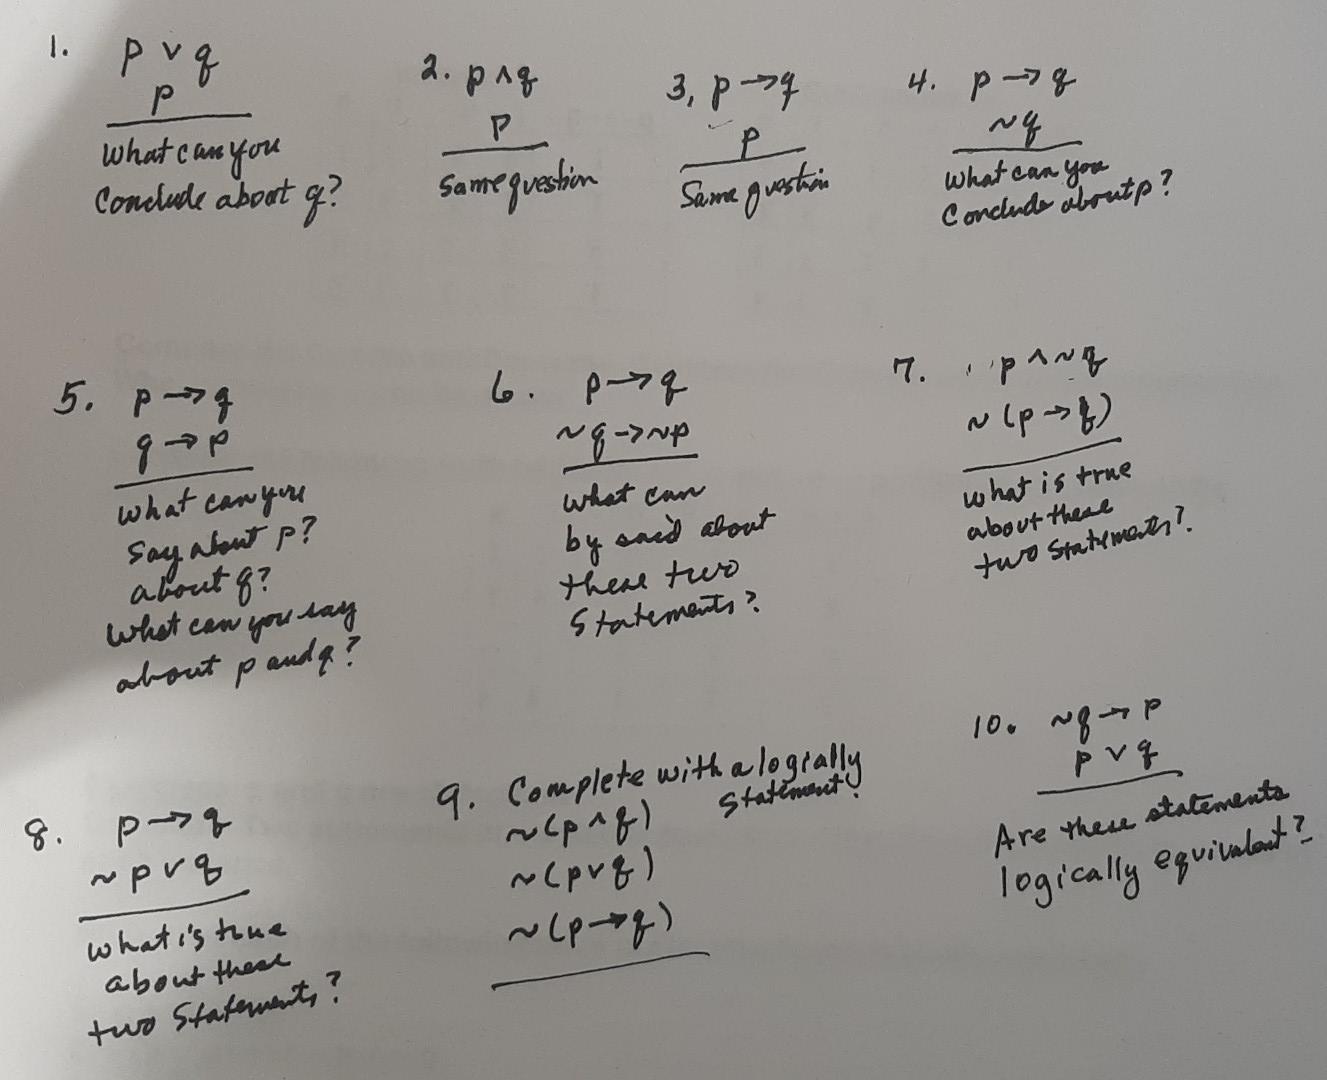 1. p ∨ q
p
What can you
Conclude about q?
2. p ∧ q
p
Same question
3, p → q
p
Same question
4. p → q
~q
What can you
Conclude about p?
5. p → q
q → p
What can you
say about p?
about q?
What can you say
about p and q?
6. p → q
~q → ~p
What can
by said about
these two
Statements?
7. p ∧ ~q
~(p → q)
What is true
about these
two statements?
8. p → q
~p ∨ q
What is true
about these
two statements?
9. Complete with a logially
statement.
~(p ∧ q)
~(p ∨ q)
~(p → q)
10. ~q → p
p ∨ q
Are these statements
logically equivalent?